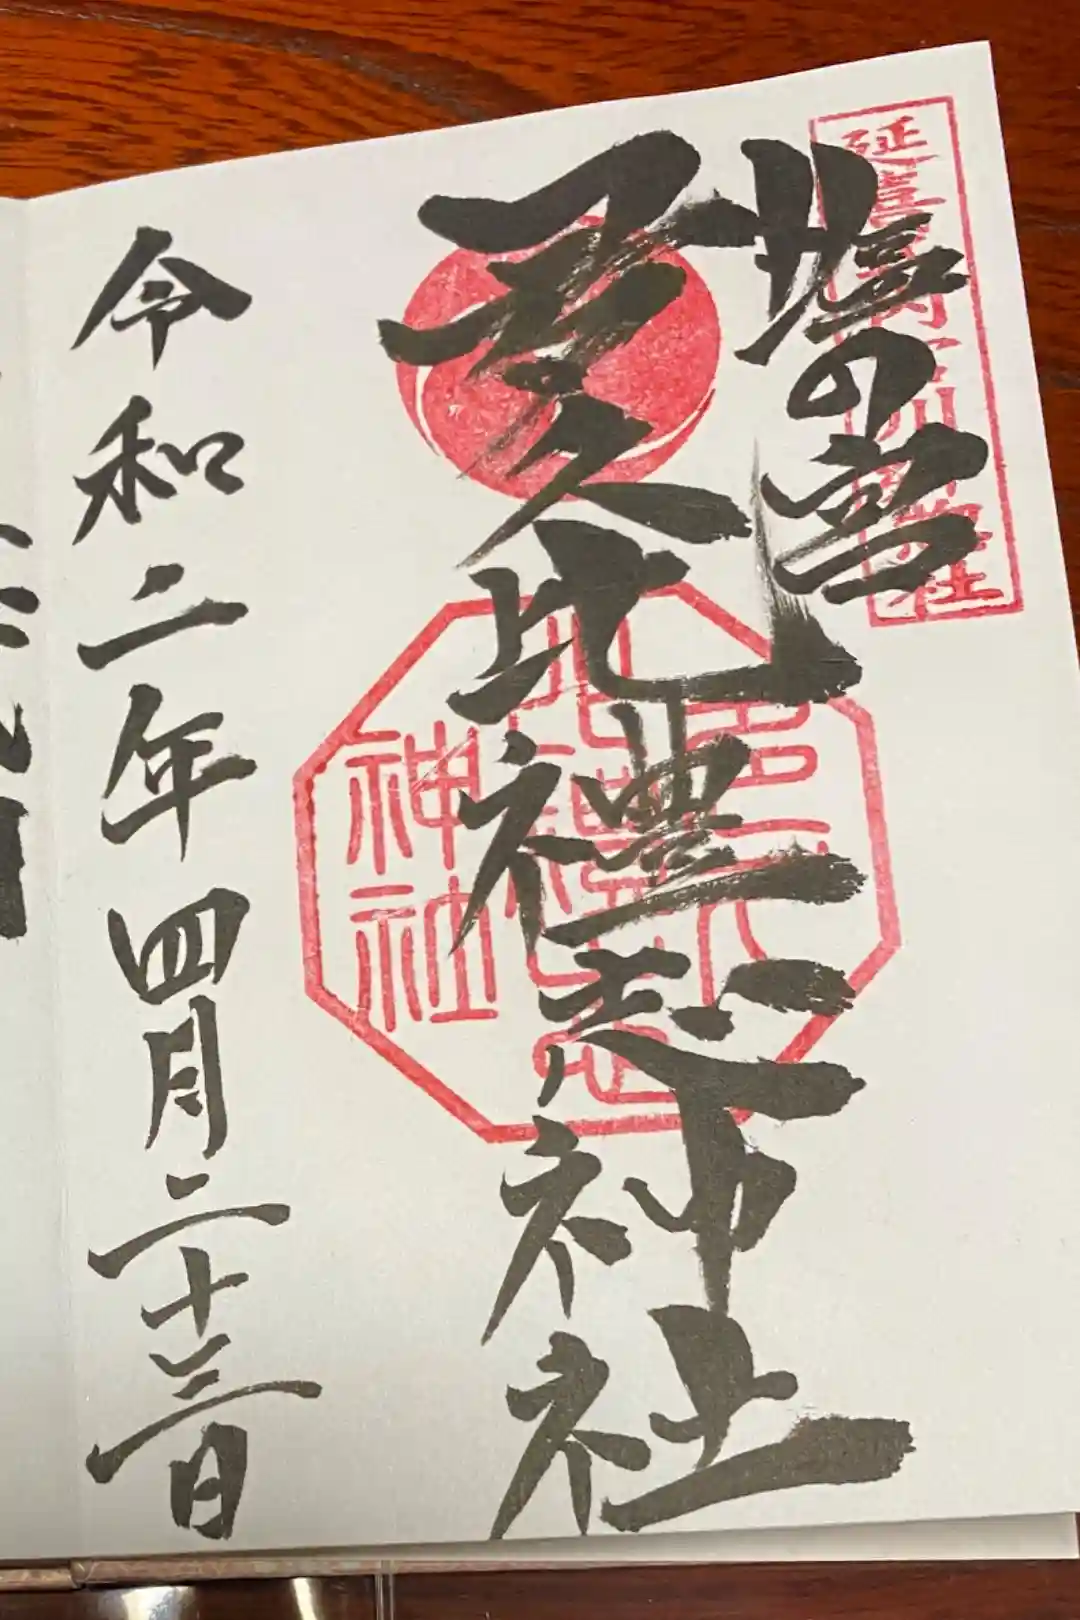 塩の宮
多久比禮志神社
令和二年四月二十三日
多久
比禮志
神社